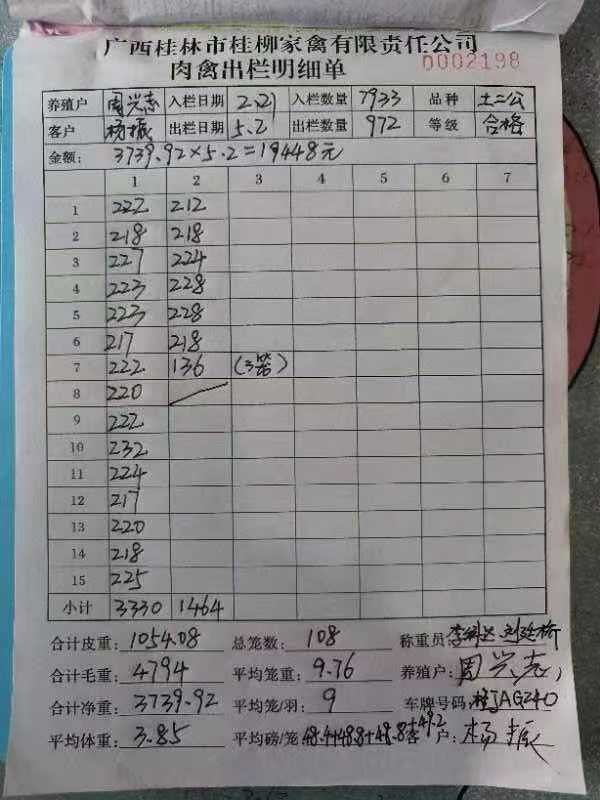 广西桂林市桂柳家禽有限责任公司
肉禽出栏明细单 0002198
养殖户 周兴志 入栏日期 2.21 入栏数量 7933 品种 土二公
客户 杨振 出栏日期 5.2 出栏数量 972 等级 合格
金额: 3739.92×5.2=19448元
1 2 3 4 5 6 7
1 222 212
2 218 218
3 227 224
4 223 228
5 223 228
6 217 218
7 222 136 (3笼)
8 220
9 222
10 232
11 224
12 217
13 220
14 218
15 225
小计 3330 1464
合计皮重: 1054.08 总笼数: 108 称重员:
合计毛重: 4794 平均笼重: 9.76 养殖户: 周兴志
合计净重: 3739.92 平均笼/羽: 9 车牌号码: 桂JAG240
平均体重: 3.85 平均磅/笼 48.4+48.8+48.8+49.2 客户: 杨振